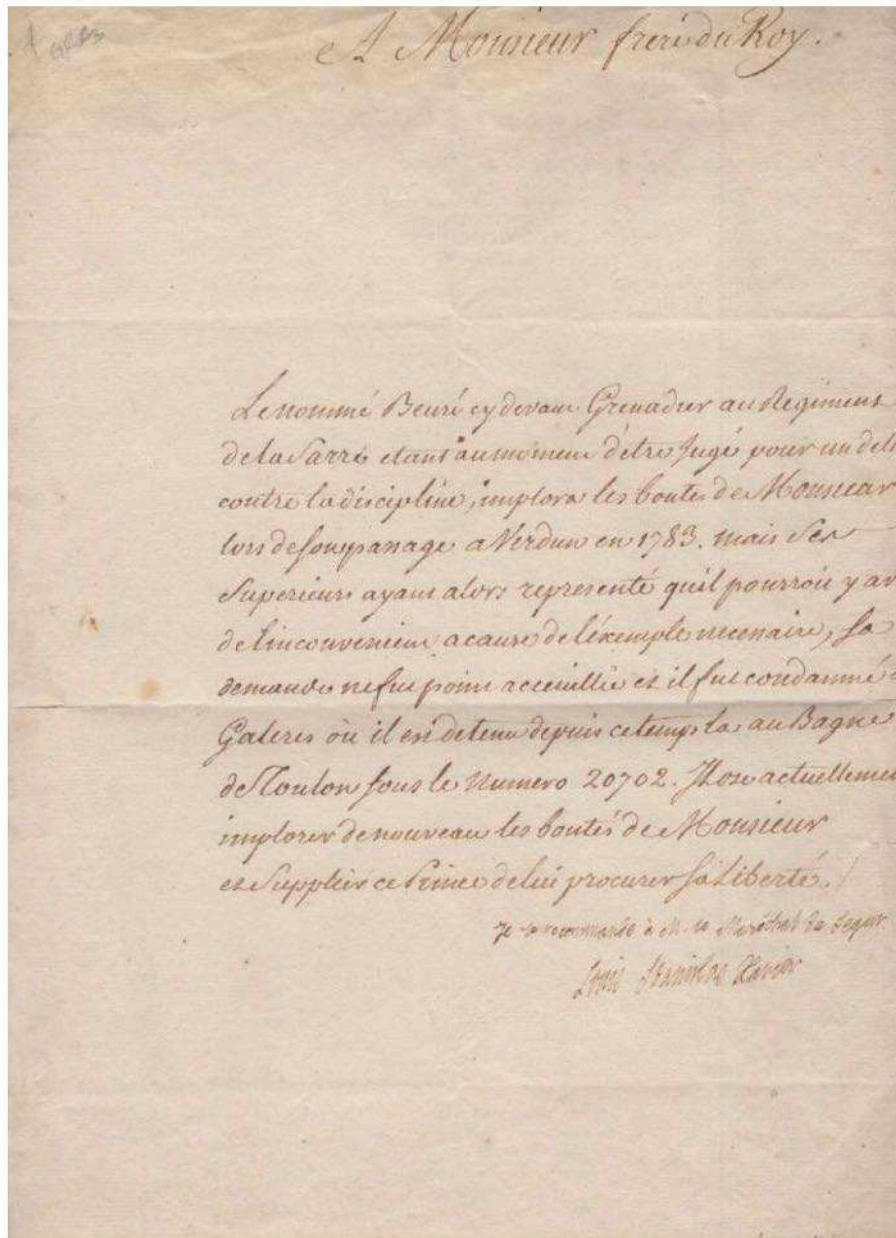 A Monsieur frere du Roy.
Le nommé Beuré cy devant Grenadier au Regiment
de la Sarre etant au moment d'être Jugé pour un deli
contre la discipline, implora les bontés de Monsieur
lors de son passage a Verdun en 1783. mais Ses
Superieurs ayant alors representé quil pourroit y av
de l'inconvenient a cause de l'exemple necessaire, sa
demande ne fut point accueillie et il fut condamné
Galeres où il est detenu depuis ce temps la au Bagne
de Toulon sous le Numero 20702. Il ose actuellemen
implorer de nouveau les bontés de Monsieur
et Supplier ce Prince de lui procurer sa Liberté.
Je le recommande à M. le Maréchal de Segur
Louis Stanislas Xavier